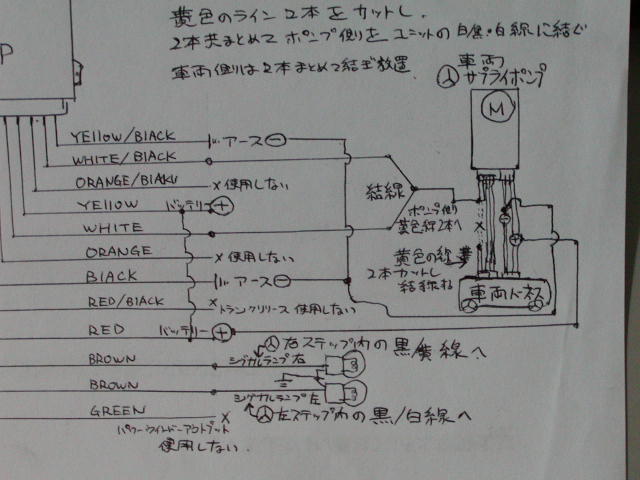 黄色のライン2本をカットし、
2本共まとめてポンプ側を ユニットの白黒・白線に結ぐ
車両側は2本まとめて結ぎ放置.
P
車両
サプライポンプ
M
YELLOW/BLACK アース ⊖
WHITE/BLACK
ORANGE/BLAKU × 使用しない
YELLOW バッテリー ⊕
WHITE
ORANGE × 使用しない
BLACK アース ⊖
RED/BLACK × トランクリリース 使用しない
RED バッテリー ⊕
BROWN シグナルランプ右
BROWN シグナルランプ左
GREEN ×
パワーウインドーアウトプット
使用しない.
結線
ポンプ側
黄色線2本へ
黄色の線
2本カットし
車両ハーネス
右ステップ内の黒/黄線へ
左ステップ内の黒/白線へ